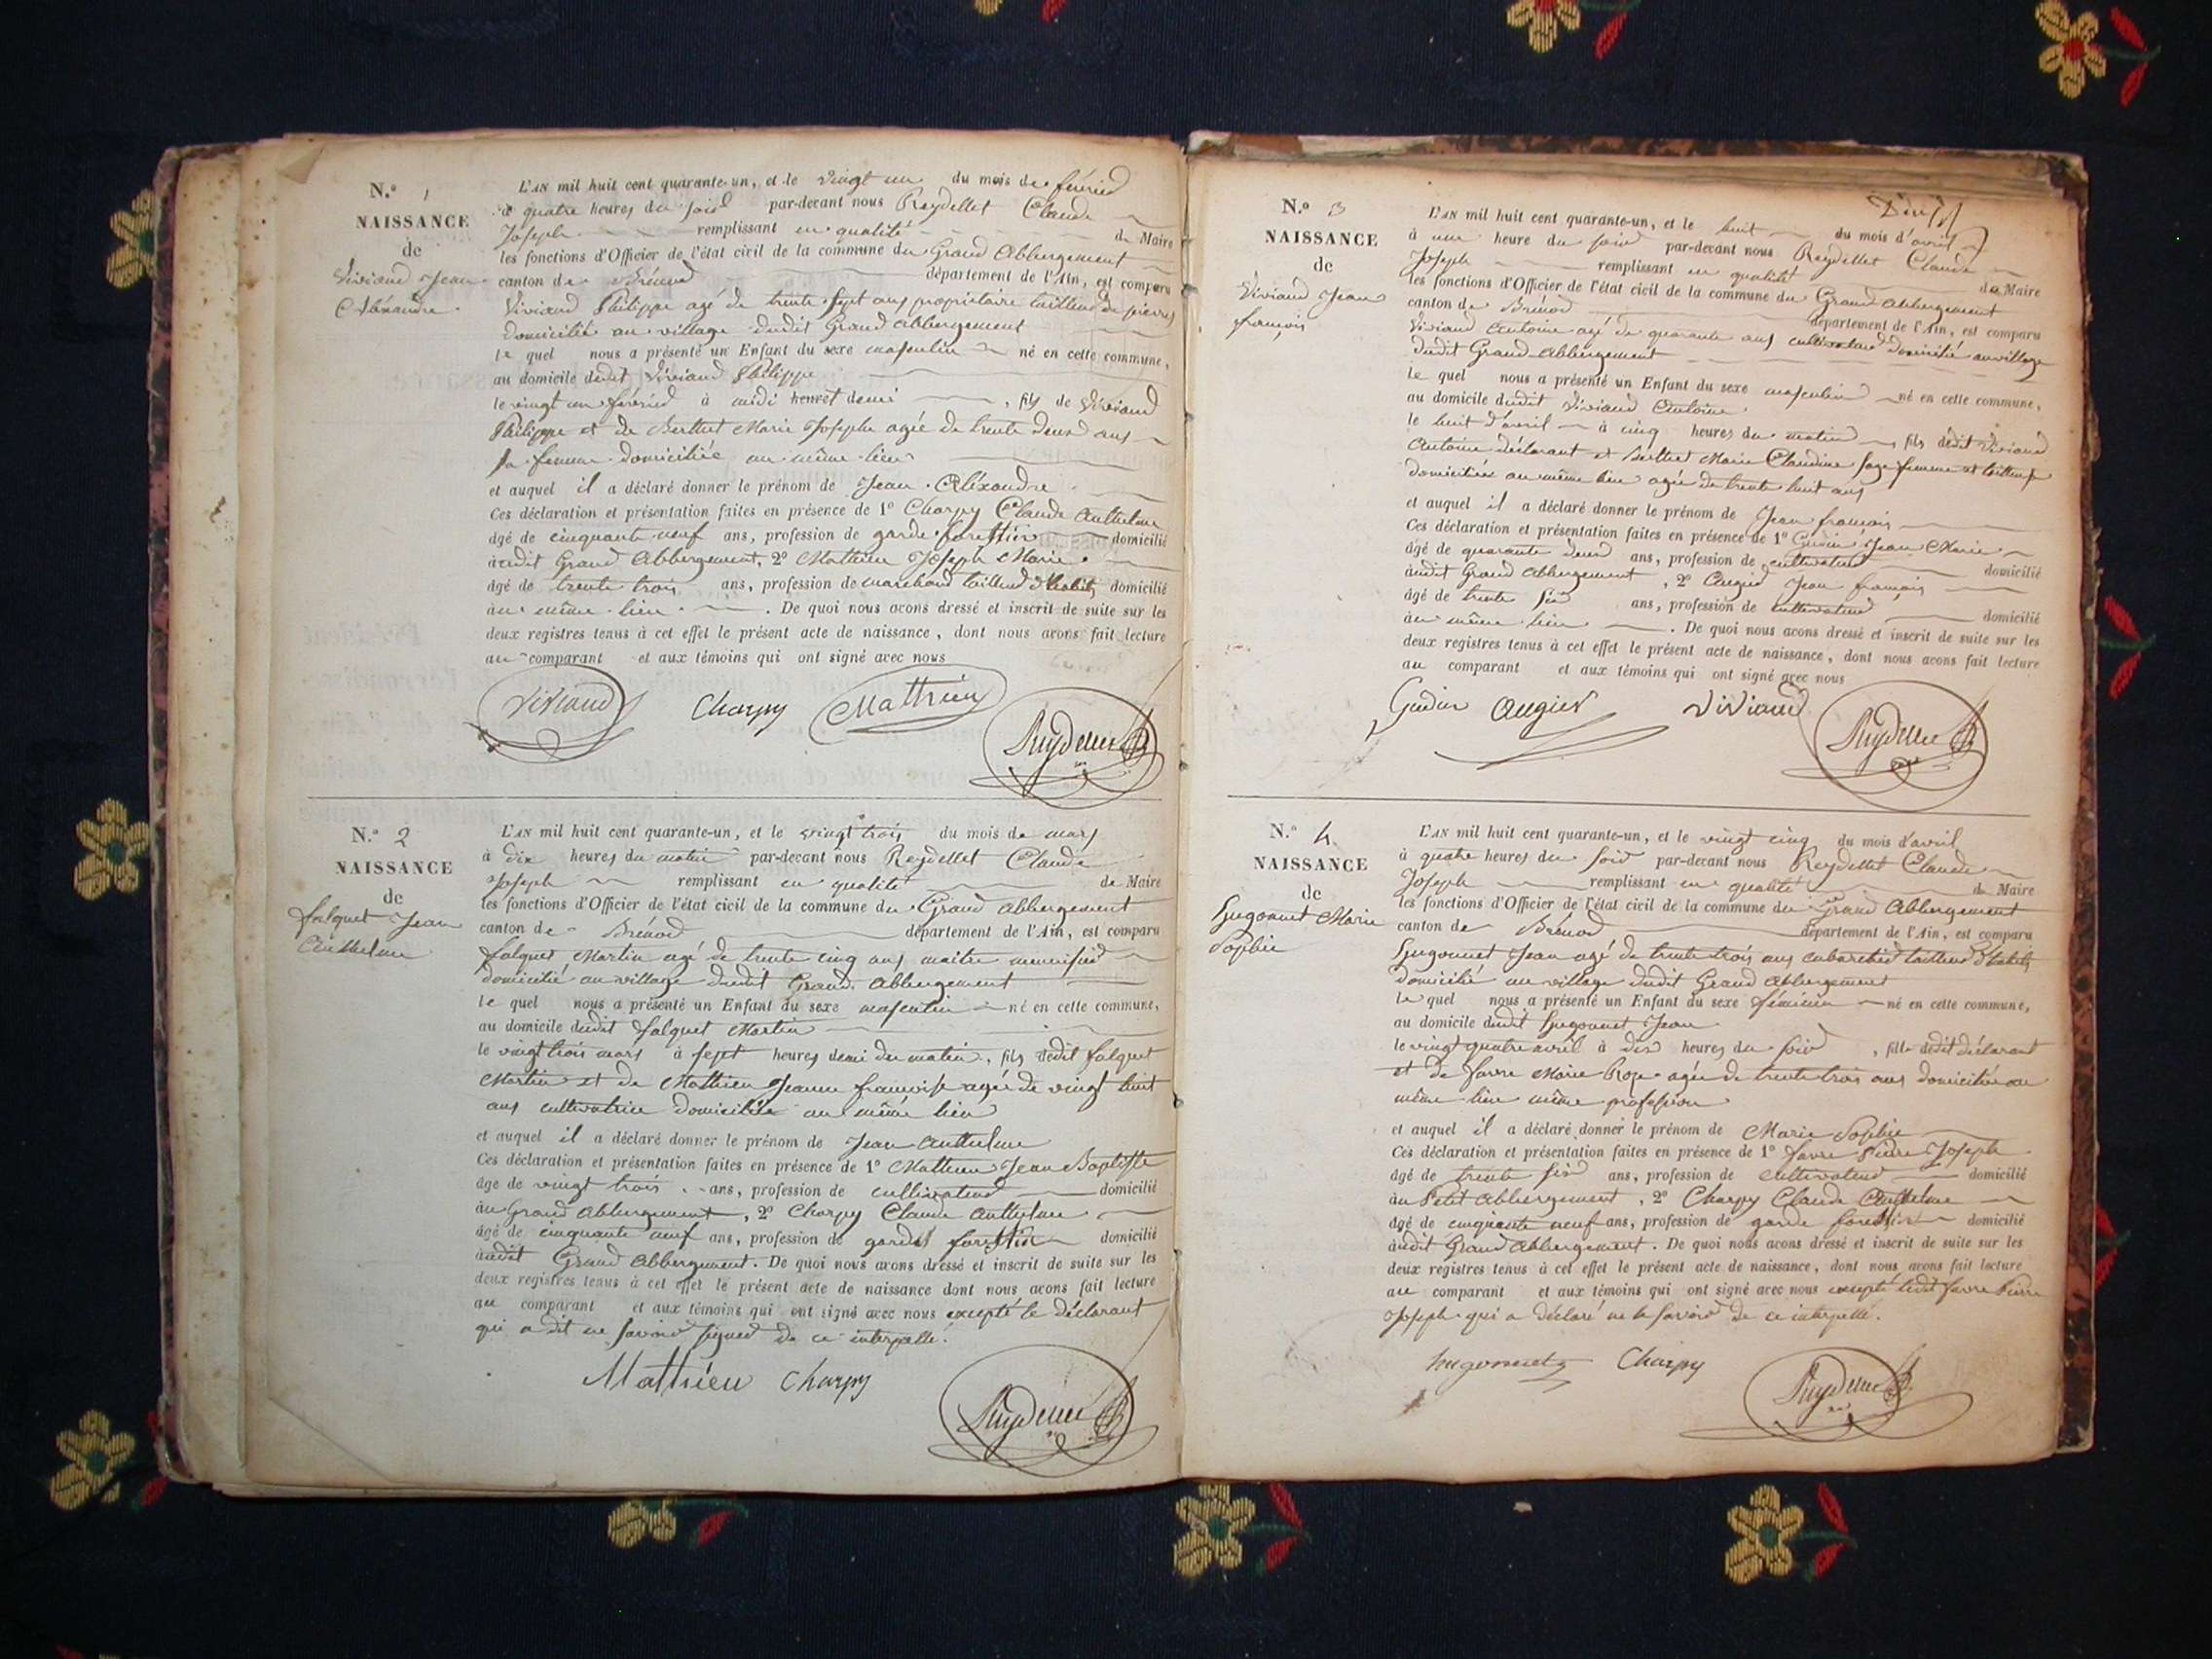 N.º 1
NAISSANCE
de
Viviand Jean
Alexandre
L'AN mil huit cent quarante-un, et le vingt un du mois de février
à quatre heures du soir par-devant nous Reydellet Claude
Joseph remplissant en qualité de Maire
les fonctions d'Officier de l'état civil de la commune du Grand Abbergement
canton de Brénod département de l'Ain, est comparu
Viviand Philippe agé de trente sept ans propriétaire tailleur de pierres
domicilié au village dudit Grand Abbergement
le quel nous a présenté un Enfant du sexe masculin né en cette commune,
au domicile dudit Viviand Philippe
le vingt un février à midi heure et demi, fils de Viviand
Philippe et de Berthet Marie Josephe agée de trente deux ans
sa femme domiciliée au même lieu
et auquel il a déclaré donner le prénom de Jean Aléxandre
Ces déclaration et présentation faites en présence de 1º Charpy Claude Anthelme
âgé de cinquante neuf ans, profession de garde forestier domicilié
audit Grand Abbergement, 2º Mathieu Joseph Marie
âgé de trente trois ans, profession de marchand tailleur d'habits domicilié
au même lieu. De quoi nous avons dressé et inscrit de suite sur les
deux registres tenus à cet effet le présent acte de naissance, dont nous avons fait lecture
au comparant et aux témoins qui ont signé avec nous
Viviand Charpy Mathieu
Reydellet
N.º 2
NAISSANCE
de
falquet Jean
Anthelme
L'AN mil huit cent quarante-un, et le vingt trois du mois de mars
à dix heures du matin par-devant nous Reydellet Claude
Joseph remplissant en qualité de Maire
les fonctions d'Officier de l'état civil de la commune du Grand Abbergement
canton de Brénod département de l'Ain, est comparu
falquet Martin agé de trente cinq ans maitre menuisier
domicilié au village dudit Grand Abbergement
le quel nous a présenté un Enfant du sexe masculin né en cette commune,
au domicile dudit falquet Martin
le vingt trois mars à sept heures demi du matin, fils dedit falquet
Martin et de Mathieu Jeanne françoise agée de vingt huit
ans cultivatrice domiciliée au même lieu
et auquel il a déclaré donner le prénom de Jean Anthelme
Ces déclaration et présentation faites en présence de 1º Mathieu Jean Baptiste
âgé de vingt trois ans, profession de cultivateur domicilié
au Grand Abbergement, 2º Charpy Claude Anthelme
âgé de cinquante neuf ans, profession de garde forestier domicilié
audit Grand Abbergement. De quoi nous avons dressé et inscrit de suite sur les
deux registres tenus à cet effet le présent acte de naissance dont nous avons fait lecture
au comparant et aux témoins qui ont signé avec nous excepté le déclarant
qui a dit ne savoir signer de ce interpellé.
Mathieu Charpy
Reydellet
N.º 3
NAISSANCE
de
Viviand Jean
françois
L'AN mil huit cent quarante-un, et le huit du mois d'avril
à une heure du soir par-devant nous Reydellet Claude
Joseph remplissant en qualité de Maire
les fonctions d'Officier de l'état civil de la commune du Grand Abbergement
canton de Brénod département de l'Ain, est comparu
Viviand Antoine agé de quarante ans cultivateur domicilié au village
dudit Grand Abbergement
le quel nous a présenté un Enfant du sexe masculin né en cette commune,
au domicile dudit Viviand Antoine
le huit d'avril à cinq heures du matin, fils dedit Viviand
Antoine déclarant et Berthet Marie Claudine sage femme
domiciliée au même lieu agée de trente huit ans
et auquel il a déclaré donner le prénom de Jean françois
Ces déclaration et présentation faites en présence de 1º Jean Marie
âgé de quarante deux ans, profession de cultivateur domicilié
audit Grand Abbergement, 2º Augier Jean françois
âgé de trente six ans, profession de cultivateur domicilié
au même lieu. De quoi nous avons dressé et inscrit de suite sur les
deux registres tenus à cet effet le présent acte de naissance, dont nous avons fait lecture
au comparant et aux témoins qui ont signé avec nous
Augier Viviand
Reydellet
N.º 4
NAISSANCE
de
Hugonnet Marie
Sophie
L'AN mil huit cent quarante-un, et le vingt cinq du mois d'avril
à quatre heures du soir par-devant nous Reydellet Claude
Joseph remplissant en qualité de Maire
les fonctions d'Officier de l'état civil de la commune du Grand Abbergement
canton de Brénod département de l'Ain, est comparu
Hugonnet Jean agé de trente trois ans cabaretier tailleur d'habits
domicilié au village dudit Grand Abbergement
le quel nous a présenté un Enfant du sexe féminin né en cette commune,
au domicile dudit Hugonnet Jean
le vingt quatre avril à dix heures du soir, fille dedit déclarant
et de favre Marie Rose agée de trente trois ans domiciliée au
même lieu même profession
et auquel il a déclaré donner le prénom de Marie Sophie
Ces déclaration et présentation faites en présence de 1º favre Pierre Joseph
âgé de trente six ans, profession de cultivateur domicilié
au Petit Abbergement, 2º Charpy Claude Anthelme
âgé de cinquante neuf ans, profession de garde forestier domicilié
audit Grand Abbergement. De quoi nous avons dressé et inscrit de suite sur les
deux registres tenus à cet effet le présent acte de naissance, dont nous avons fait lecture
au comparant et aux témoins qui ont signé avec nous excepté ledit favre Pierre
Joseph qui a déclaré ne le savoir de ce interpellé.
hugonnet Charpy
Reydellet